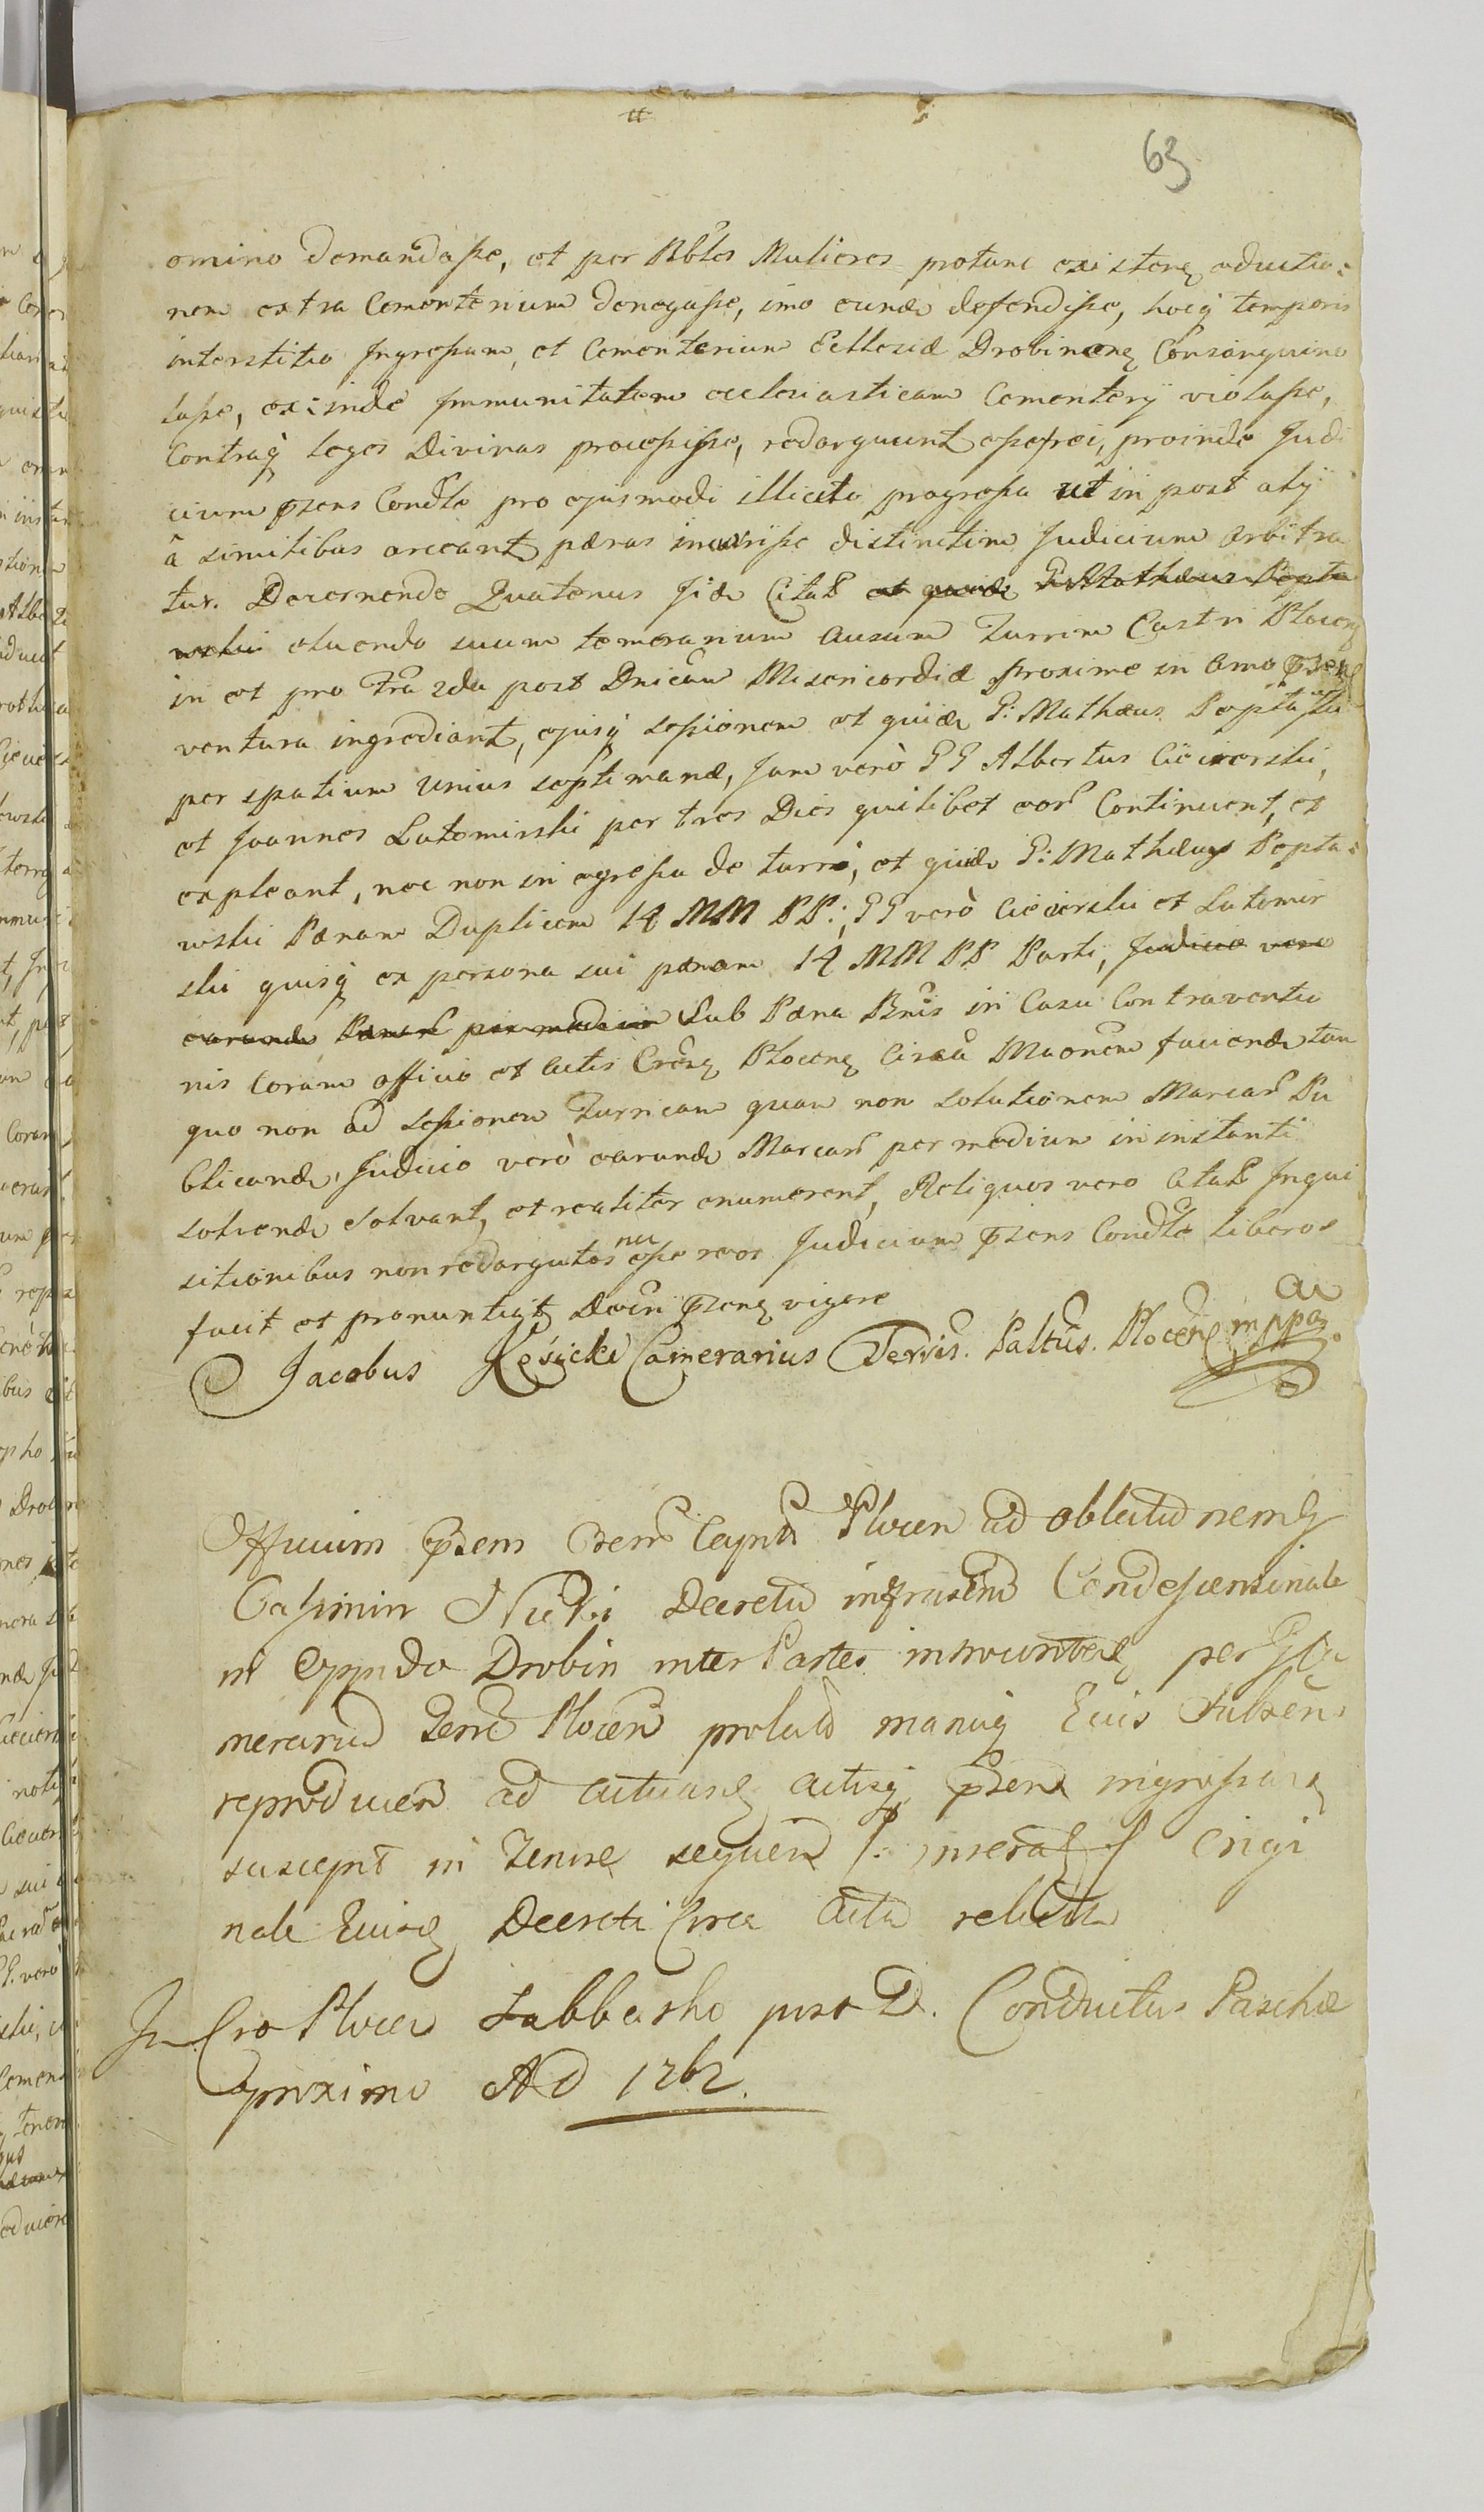 63
omino demandasse, et per Nbles Mulieres protunc existeng eductio=
nem extra Cementerium denegasse, imo eunde defendisse, hocq temporis
interstitio Ingressum, et Cementerium Ecclesiæ Drobineng Consanguino
lasse, exinde Immunitatem ecclesiasticam Cementerÿ violasse,
Contraq leges Divinas processisse, redarguunt esse rei, proinde Judi
cium pzens Condle pro ejusmodi illicito progressu ut in post alÿ
â similibus arceant pænas incurrisse distinctim Judicium arbitra
tur. Decernendo Quatenus Jide Citati et quide G Mathæus Pepło
wski eluendo suum temerarium ausum Turrim Castri Ploceng
in et pro Fra 2da post Dnicam Misericordiæ proxime in Anno pzeng
ventura ingrediant, ejusq sessionem et quide G: Mathæus Pepłowski
per spatium unius septimanæ, Jam verò GG Albertus Ciecierski,
et Joannes Lutomirski per tres Dies quilibet eor Continuent, et
expleant, nec non in egressu de turri, et quide G: Mathæus Pepło=
wski Pænam Duplicem 14 MM PP:, GG verò Ciecierski et Lutomir
ski quisq ex persona sui pænam 14 MM PP Parti, Judicio vero
earunde Pænar per medium Sub Pæna Bnis in Casu Contraventio
nis Coram officio et Actis Crens Ploceng Circa Maonem faciende tam
quo non ad sessionem Turricam quam non solutionem Marcar Pu
blicande, Judicio verò earunde Marcar per medium in instanti
solvende solvant, et realiter enumerent, Reliquos vero Citatos Inqui
sitionibus non redargutos nec esse reos Judicium pzens Condle liberos
facit et pronuntiat Decri pzeng vigore
Jacobus Kęsicki Camerarius Terris. Paltus. Ploceng mppa
Officium pzens Crense Ploceń ad oblationem
Casimiri Decretu infrascriptu Condescensionale
in Oppido Drobin inter Partes introcontentas per G Ca
merariu Terrę Ploceń prolatu manuq Ejus
reproducen ad acticang actisq pzens ingrossang
suscepit in Tenore sequen origi
nale Ejusq Decreti Circa Acta relicta
In Cro Ploceń Sabbatho post D. Conductus Paschæ
proximo AD 1762.